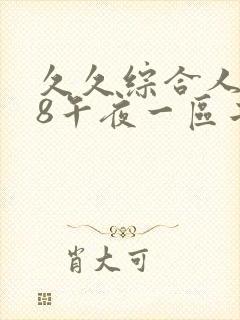 久久综合人
8午夜一區
肖大可